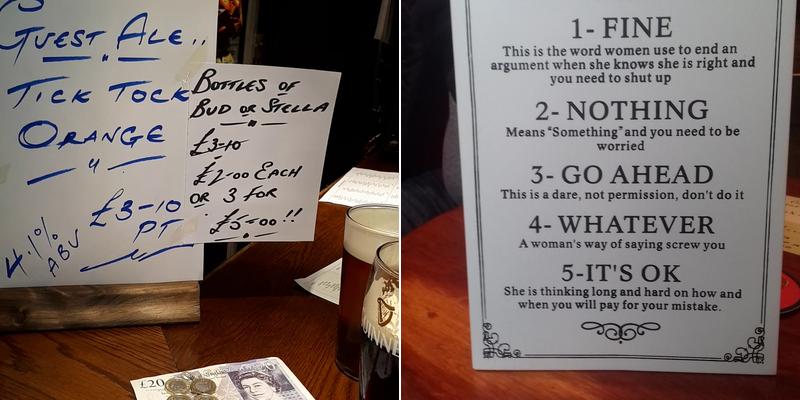 GUEST ALE..
TICK TOCK
ORANGE
"
£3-10
PT
4.1%
ABV
BOTTLES OF
BUD OR STELLA
£3-10
£2-00 EACH
OR 3 FOR
£5-00!!
£20
1- FINE
This is the word women use to end an
argument when she knows she is right and
you need to shut up
2- NOTHING
Means "Something" and you need to be
worried
3- GO AHEAD
This is a dare, not permission, don't do it
4- WHATEVER
A woman's way of saying screw you
5-IT'S OK
She is thinking long and hard on how and
when you will pay for your mistake.